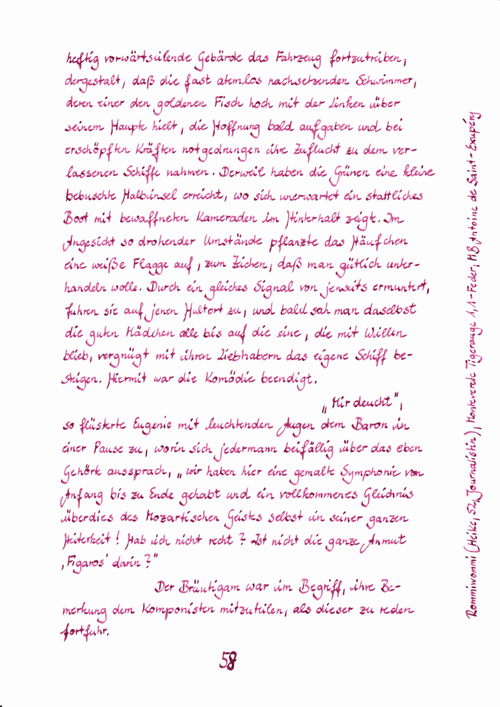 heftig vorwärtseilende Gebärde das Fahrzeug fortzutreiben,
dergestalt, daß die fast atemlos nachsetzenden Schwimmer,
deren einer den goldenen Fisch hoch mit der Linken über
seinem Haupte hielt, die Hoffnung bald aufgaben und bei
erschöpften Kräften notgedrungen ihre Zuflucht zu dem ver-
lassenen Schiffe nahmen. Derweil haben die Grünen eine kleine
bebuschte Halbinsel erreicht, wo sich unerwartet ein stattliches
Boot mit bewaffneten Kameraden im Hinterhalt zeigte. Im
Angesicht so drohender Umstände pflanzte das Häufchen
eine weiße Flagge auf, zum Zeichen, daß man gütlich unter-
handeln wolle. Durch ein gleiches Signal von jenseits ermuntert,
fuhren sie auf jenen Haltort zu, und bald sah man daselbst
die guten Mädchen alle bis auf die eine, die mit Willen
blieb, vergnügt mit ihren Liebhabern das eigene Schiff be-
steigen. Hiermit war die Komödie beendigt.
„Mir deucht",
so flüsterte Eugenie mit leuchtenden Augen dem Baron in
einer Pause zu, worin sich jedermann beifällig über das eben
Gehörte aussprach, „wir haben hier eine gemalte Symphonie von
Anfang bis zu Ende gehabt und ein vollkommenes Gleichnis
überdies des Mozartischen Geistes selbst in seiner ganzen
Heiterkeit! Hab ich nicht recht? Ist nicht die ganze Anmut
‚Figaros' darin?"
Der Bräutigam war im Begriff, ihre Be-
merkung dem Komponisten mitzuteilen, als dieser zu reden
fortfuhr.
58
Rommiwommi (Heike, 52, Journalistin), Monteverde Tigerauge 1,1-Feder, MB Antoine de Saint-Exupéry